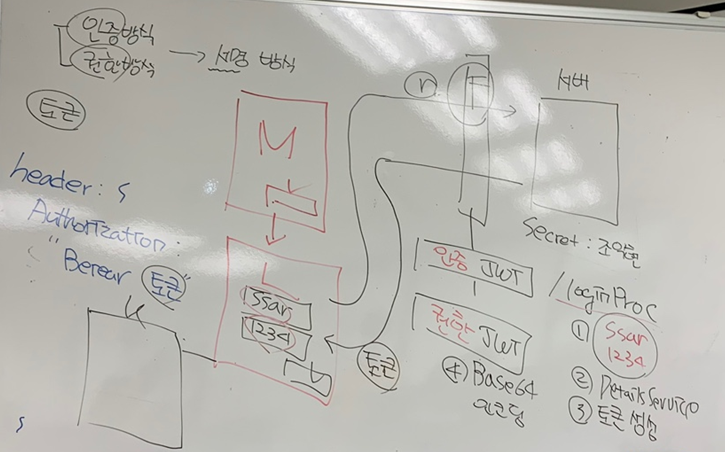 인증방식
권한방식
→ 서명 방식
토큰
header: {
Authorization:
"Berear 토큰"
}
M
L
ssar
1234
r
F
서버
Secret: 조익현
인증 JWT
권한 JWT
④ Base64
인코딩
토큰
/loginProc
① ssar
1234
② DetailsService
③ 토큰 생성